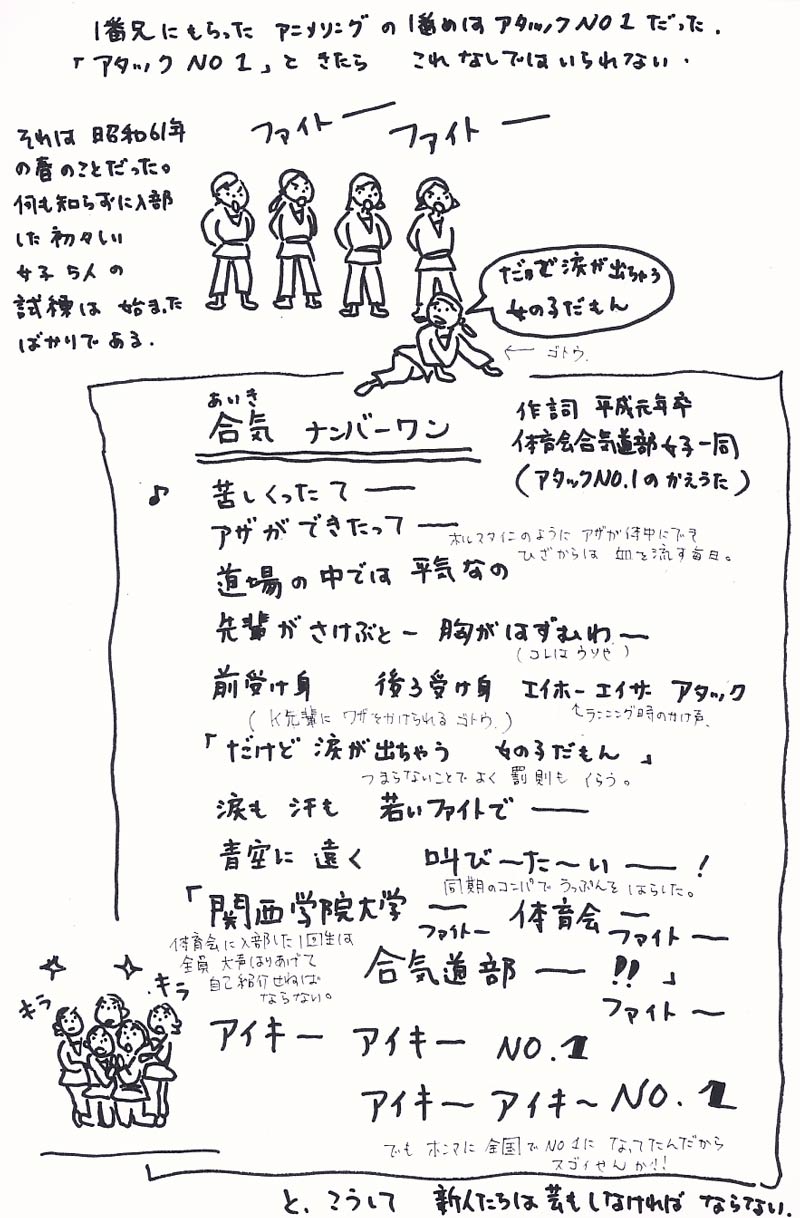 1番兄にもらった アニメソングの1番めはアタックNO1だった.
「アタックNO1」ときたら これなしではいられない.
それは 昭和61年
の春のことだった。
何も知らずに入部
した初々しい
女子5人の
試練は 始まった
ばかりである.
ファイトー ファイトー
だけど涙が出ちゃう
女の子だもん
← ゴトウ.
あいき
合気 ナンバーワン
作詞 平成元年卒
体育会合気道部女子一同
(アタックNO.1のかえうた)
♪ 苦しくったてー
アザができたってー
ホルスタインのように アザが体中にでき
ひざからは 血を流す毎日。
道場の中では 平気なの
先輩がさけぶとー 胸がはずむわー
(コレはウソや)
前受け身 後ろ受け身 エイホーエイサー アタック
(K先輩に ワザをかけられるゴトウ.)
↑ランニング時のかけ声.
「だけど 涙が出ちゃう 女の子だもん」
つまらないことでよく 罰則も くらう。
涙も 汗も 若いファイトでー
青空に 遠く 叫び〜た〜いー!
同期のコンパで うっぷんを はらした。
「関西学院大学ー 体育会ー
ファイトー ファイトー
体育会に入部した1回生は
全員 大声はりあげて
自己紹介せねば
ならない。
合気道部ー!!」
ファイト〜
キラ キラ
アイキー アイキー NO.1
アイキー アイキ〜 NO.1
でも ホンマに 全国でNO1に なってたんだから
スゴイせんか!!
と、こうして 新人たちは芸もしなければ ならない.